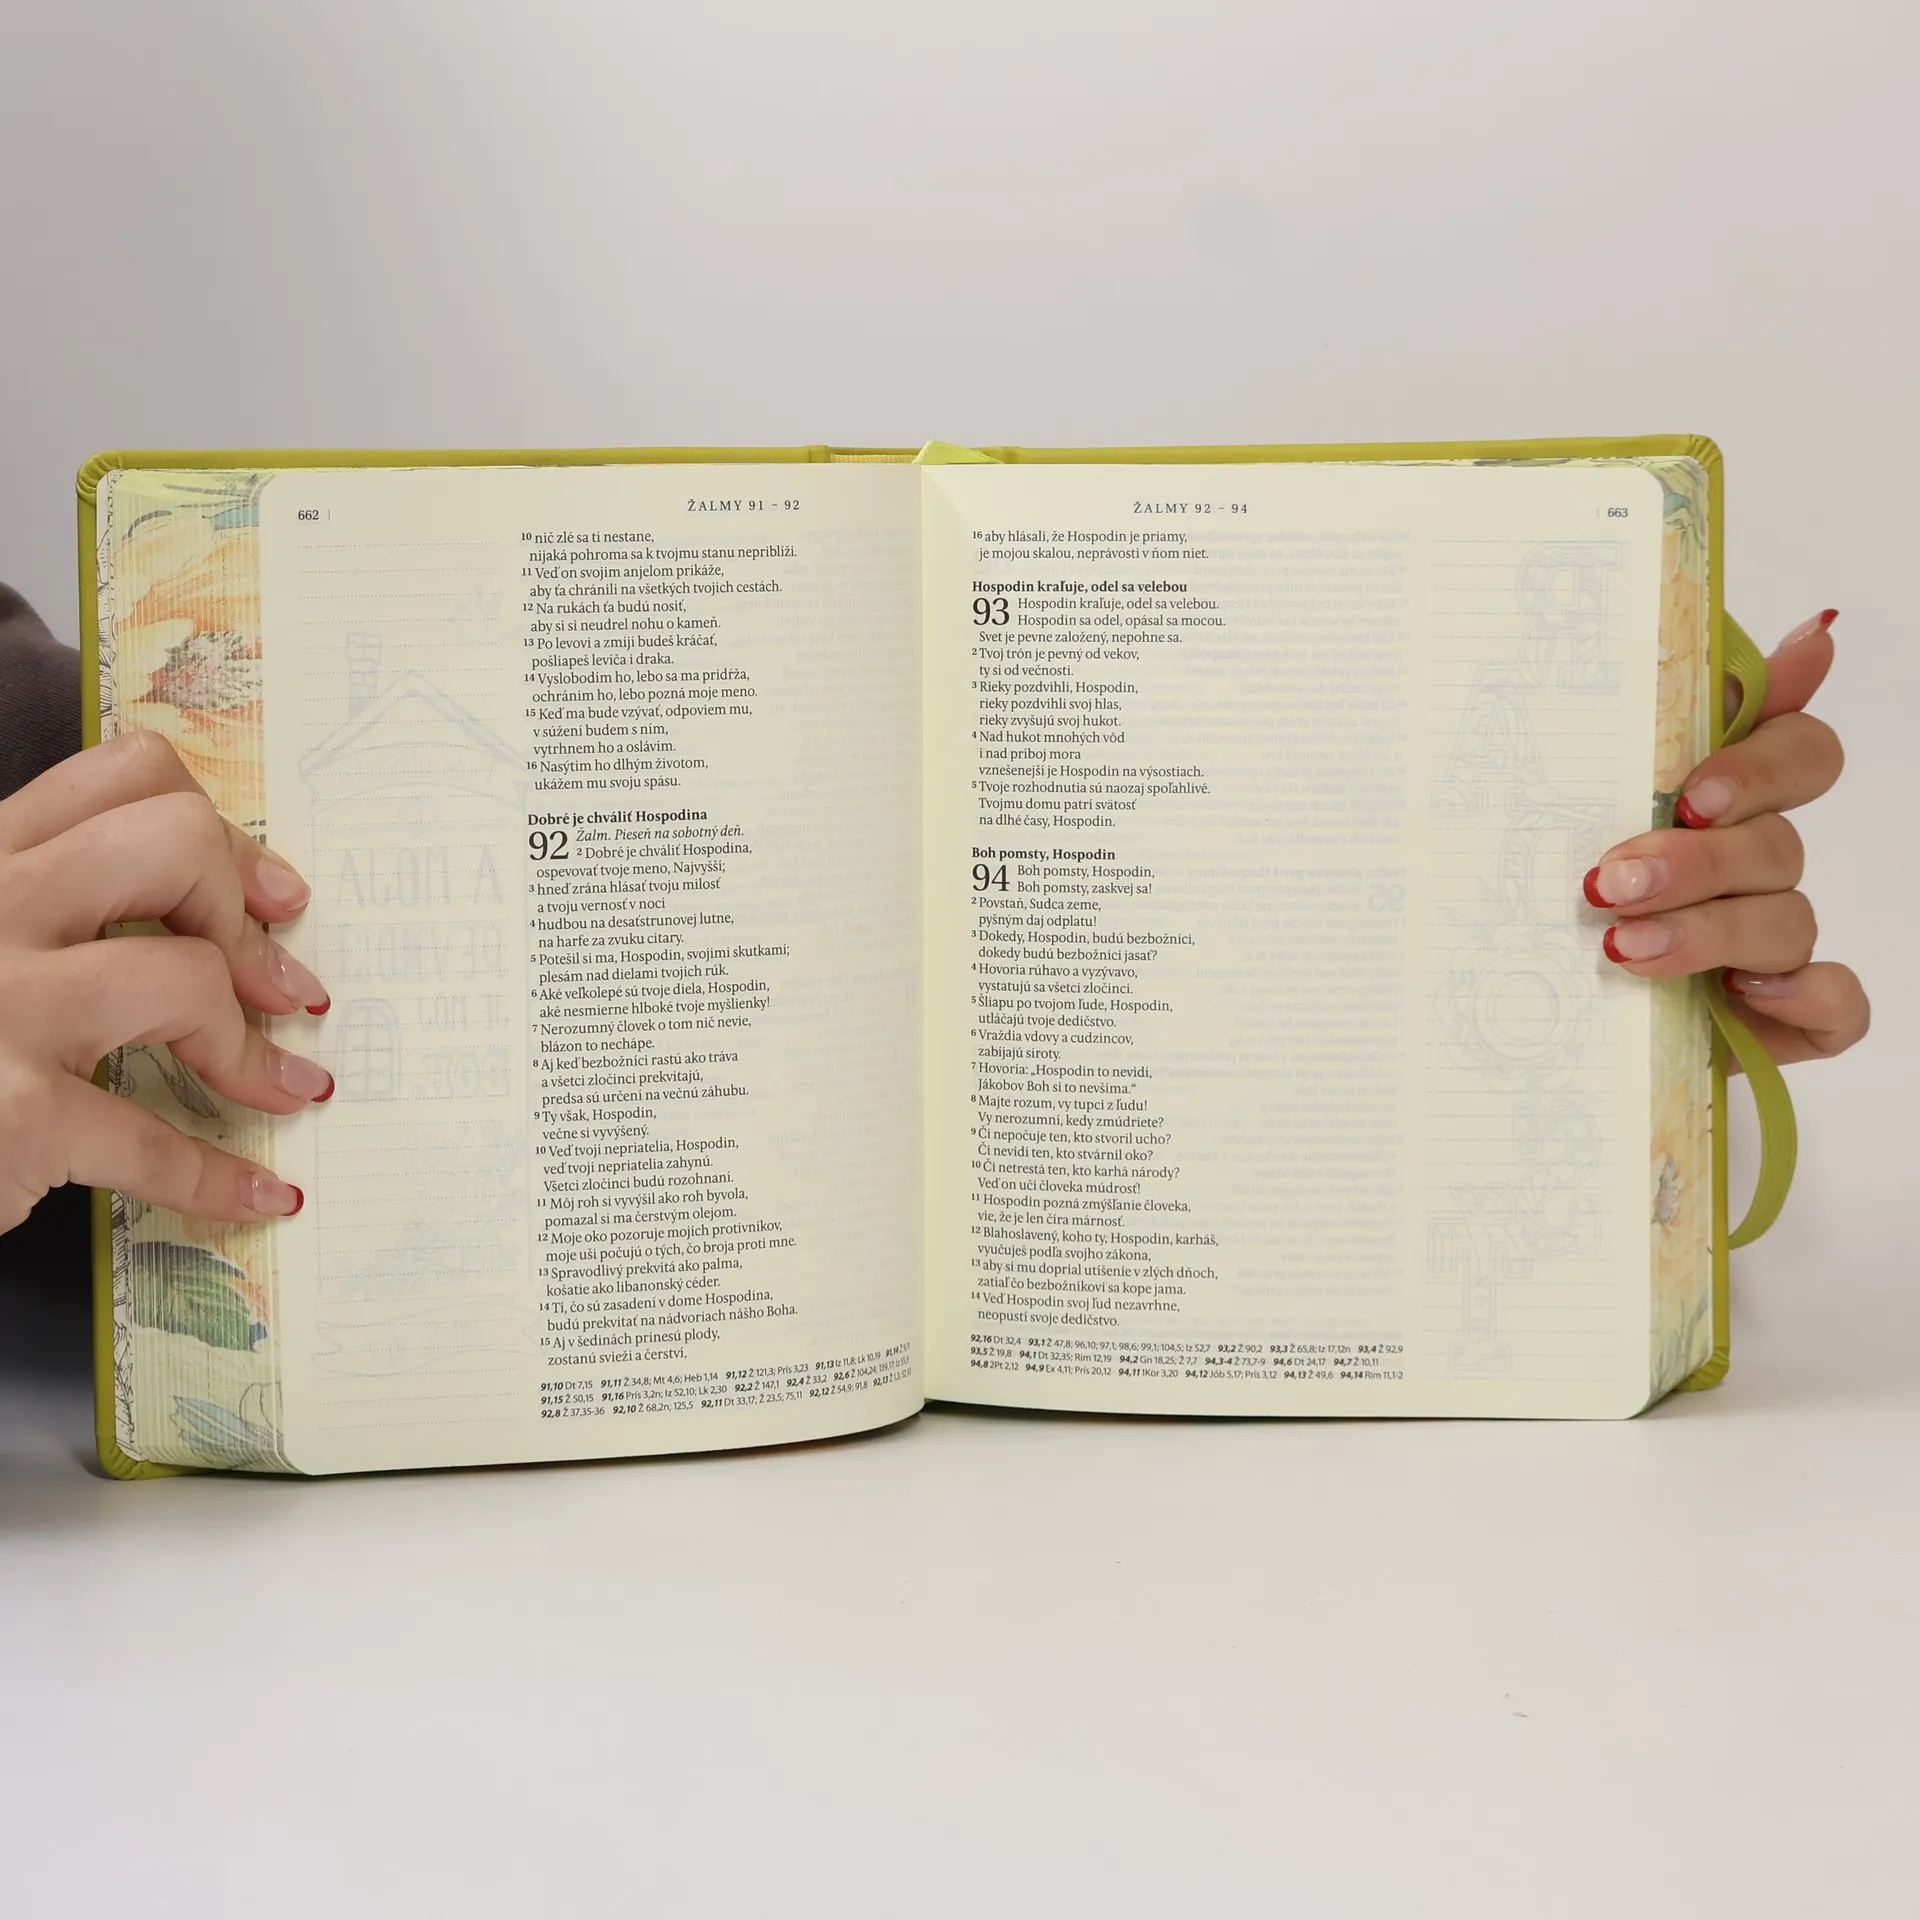 662 |
ŽALMY 91 – 92
10 nič zlé sa ti nestane,
nijaká pohroma sa k tvojmu stanu nepriblíži.
11 Veď on svojim anjelom prikáže,
aby ťa chránili na všetkých tvojich cestách.
12 Na rukách ťa budú nosiť,
aby si si neudrel nohu o kameň.
13 Po levovi a zmiji budeš kráčať,
pošliapeš levíča i draka.
14 Vyslobodím ho, lebo sa ma pridŕža,
ochránim ho, lebo pozná moje meno.
15 Keď ma bude vzývať, odpoviem mu,
v súžení budem s ním,
vytrhnem ho a oslávim.
16 Nasýtim ho dlhým životom,
ukážem mu svoju spásu.
Dobré je chváliť Hospodina
92 Žalm. Pieseň na sobotný deň.
2 Dobré je chváliť Hospodina,
ospevovať tvoje meno, Najvyšší;
3 hneď zrána hlásať tvoju milosť
a tvoju vernosť v noci
4 hudbou na desaťstrunovej lutne,
na harfe za zvuku citary.
5 Potešil si ma, Hospodin, svojimi skutkami;
plesám nad dielami tvojich rúk.
6 Aké veľkolepé sú tvoje diela, Hospodin,
aké nesmierne hlboké tvoje myšlienky!
7 Nerozumný človek o tom nič nevie,
blázon to nechápe.
8 Aj keď bezbožníci rastú ako tráva
a všetci zločinci prekvitajú,
predsa sú určení na večnú záhubu.
9 Ty však, Hospodin,
večne si vyvýšený.
10 Veď tvoji nepriatelia, Hospodin,
veď tvoji nepriatelia zahynú.
Všetci zločinci budú rozohnaní.
11 Môj roh si vyvýšil ako roh byvola,
pomazal si ma čerstvým olejom.
12 Moje oko pozoruje mojich protivníkov,
moje uši počujú o tých, čo broja proti mne.
13 Spravodlivý prekvitá ako palma,
košatie ako libanonský céder.
14 Tí, čo sú zasadení v dome Hospodina,
budú prekvitať na nádvoriach nášho Boha.
15 Aj v šedinách prinesú plody,
zostanú svieži a čerství,
91,10 Dt 7,15 91,11 Ž 34,8; Mt 4,6; Heb 1,14 91,12 Ž 121,3; Prís 3,23 91,13 Iz 11,8; Lk 10,19 91,14
91,15 Ž 50,15 91,16 Prís 3,2n; Iz 52,10; Lk 2,30 92,2 Ž 147,1 92,4 Ž 33,2 92,6 Ž 104,24; 139,17; Iz 55,9
92,8 Ž 37,35-36 92,10 Ž 68,2n; 125,5 92,11 Dt 33,17; Ž 23,5; 75,11 92,12 Ž 54,9; 91,8
ŽALMY 92 – 94
| 663
16 aby hlásali, že Hospodin je priamy,
je mojou skalou, neprávosti v ňom niet.
Hospodin kraľuje, odel sa velebou
93 Hospodin kraľuje, odel sa velebou.
Hospodin sa odel, opásal sa mocou.
Svet je pevne založený, nepohne sa.
2 Tvoj trón je pevný od vekov,
ty si od večnosti.
3 Rieky pozdvihli, Hospodin,
rieky pozdvihli svoj hlas,
rieky zvyšujú svoj hukot.
4 Nad hukot mnohých vôd
i nad príboj mora
vznešenejší je Hospodin na výsostiach.
5 Tvoje rozhodnutia sú naozaj spoľahlivé.
Tvojmu domu patrí svätosť
na dlhé časy, Hospodin.
Boh pomsty, Hospodin
94 Boh pomsty, Hospodin,
Boh pomsty, zaskvej sa!
2 Povstaň, Sudca zeme,
pyšným daj odplatu!
3 Dokedy, Hospodin, budú bezbožníci,
dokedy budú bezbožníci jasať?
4 Hovoria rúhavo a vyzývavo,
vystatujú sa všetci zločinci.
5 Šliapu po tvojom ľude, Hospodin,
utláčajú tvoje dedičstvo.
6 Vraždia vdovy a cudzincov,
zabíjajú siroty.
7 Hovoria: „Hospodin to nevidí,
Jákobov Boh si to nevšíma.“
8 Majte rozum, vy tupci z ľudu!
Vy nerozumní, kedy zmúdriete?
9 Či nepočuje ten, kto stvoril ucho?
Či nevidí ten, kto stvárnil oko?
10 Či netrestá ten, kto karhá národy?
Veď on učí človeka múdrosť!
11 Hospodin pozná zmýšľanie človeka,
vie, že je len číra márnosť.
12 Blahoslavený, koho ty, Hospodin, karháš,
vyučuješ podľa svojho zákona,
13 aby si mu doprial utíšenie v zlých dňoch,
zatiaľ čo bezbožníkovi sa kope jama.
14 Veď Hospodin svoj ľud nezavrhne,
neopustí svoje dedičstvo.
92,16 Dt 32,4 93,1 Ž 47,8; 96,10; 97,1; 98,6; 99,1; 104,5; Iz 52,7 93,2 Ž 90,2 93,3 Ž 65,8; Iz 17,12n 93,4 Ž 92,9
93,5 Ž 19,8 94,1 Dt 32,35; Rim 12,19 94,2 Gn 18,25; Ž 7,7 94,3-4 Ž 73,7-9 94,6 Dt 24,17 94,7 Ž 10,11
94,8 2Pt 2,12 94,9 Ex 4,11; Prís 20,12 94,11 1Kor 3,20 94,12 Jób 5,17; Prís 3,12 94,13 Ž 49,6 94,14 Rim 11,1-2